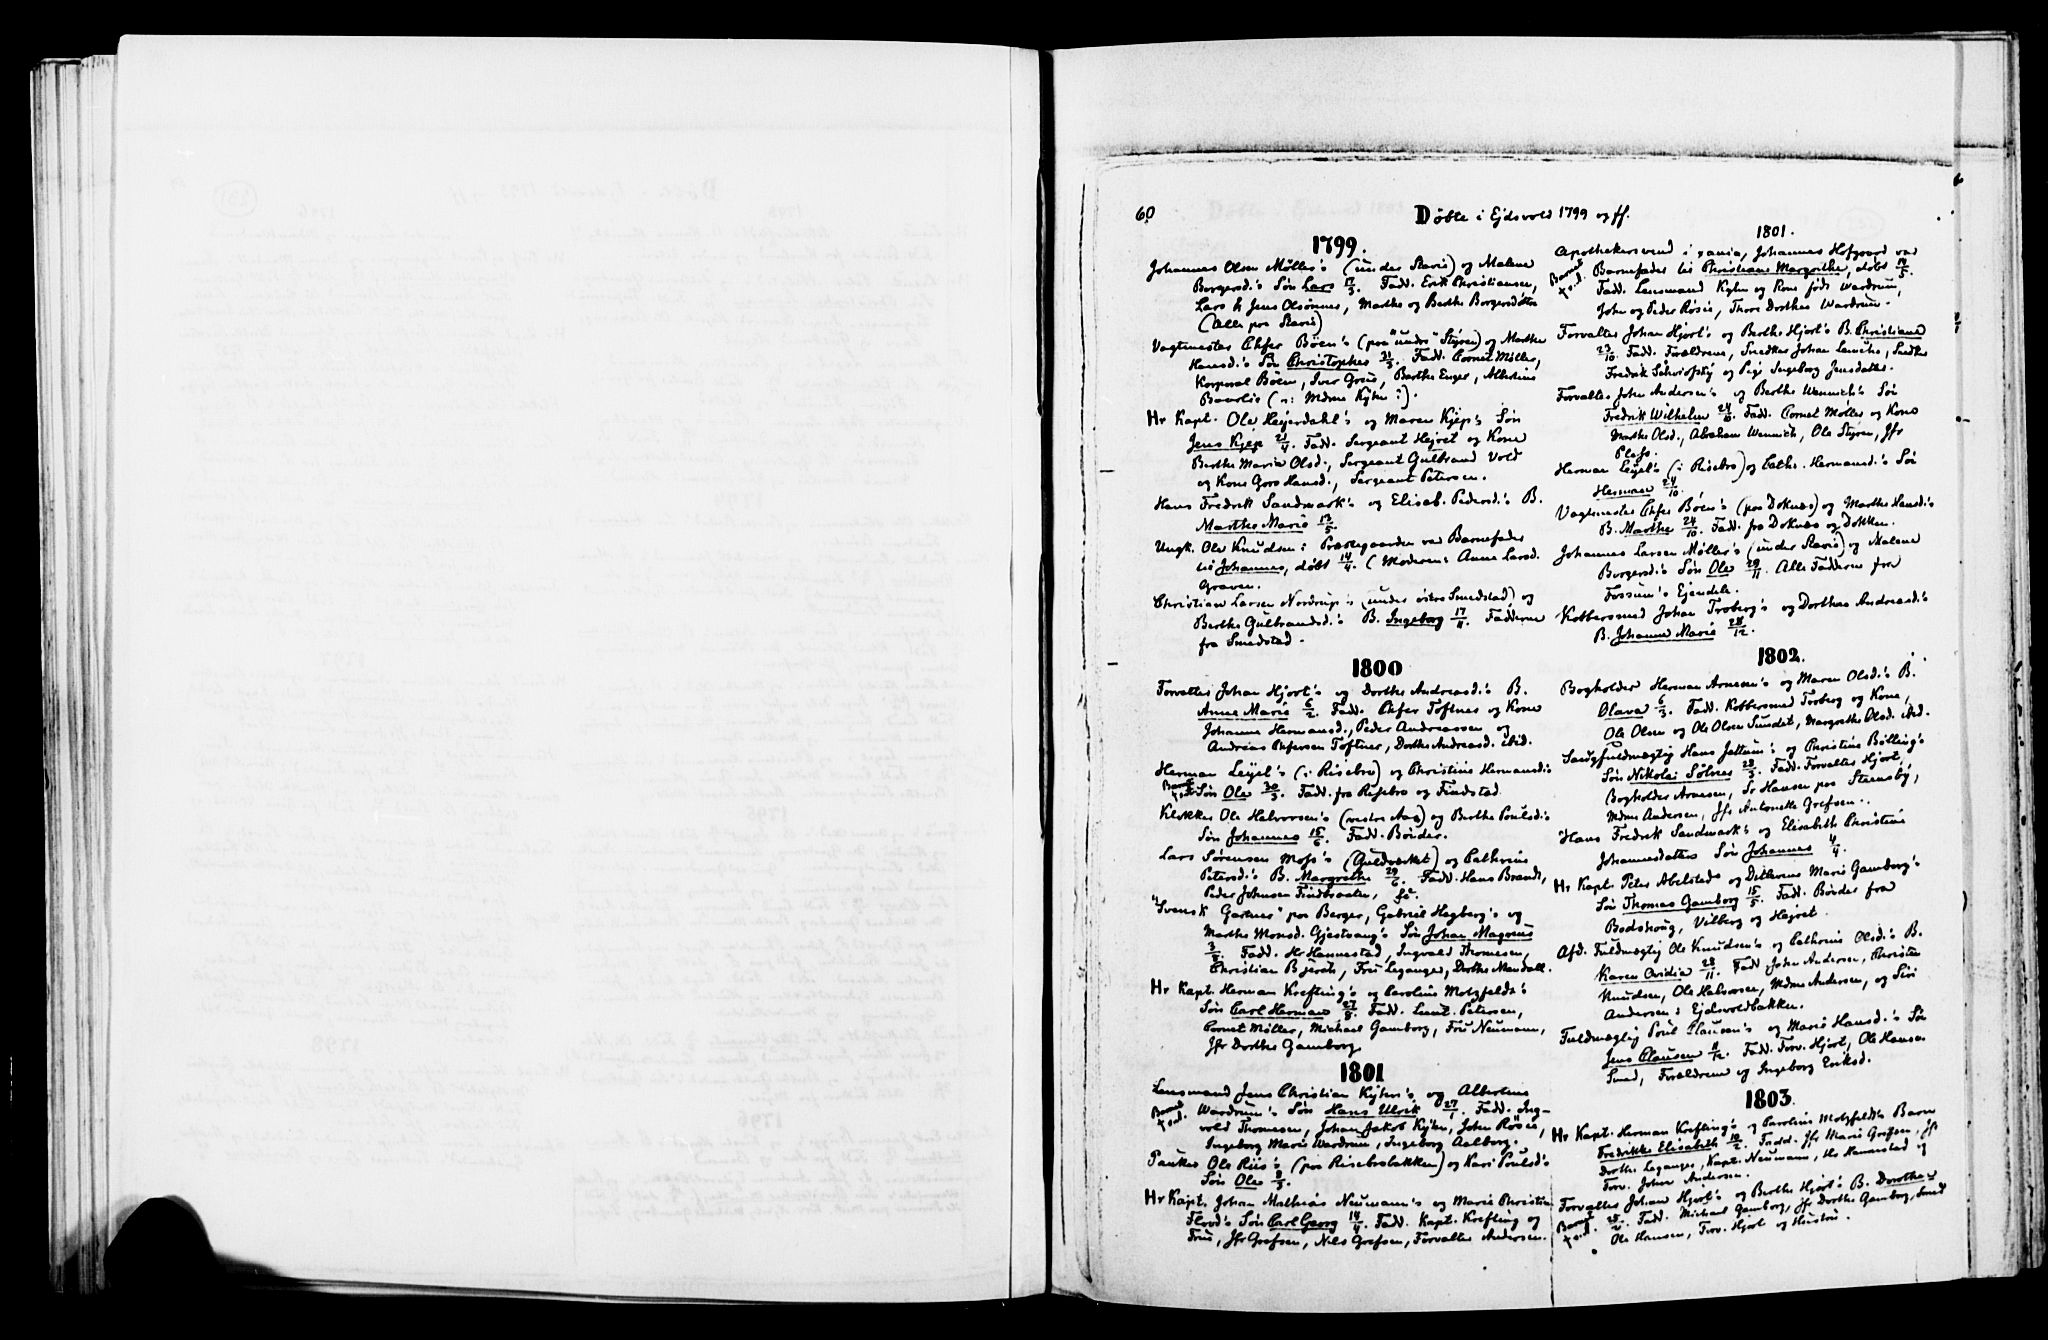 60
Døbte i Ejdsvold 1799 og ff.
1799.
Johannes Olsen Møller's (under Ravis) og Malene
Borgersd.'s Søn Lars 17/3. Fadd. Erik Christiansen,
Lars & Jens Olsønner, Marthe og Berthe Borgersdøtre
(Alle paa Ravis)
Vagtmester Chfer Bøen's (paa "under" Styren) og Marthe
Hansd.'s Søn Christopher 31/3. Fadd. Cornet Møller,
Korporal Bøen, Iver Grue, Barthe Enger, Albertine
Baarlie (ɔ: Mdme Kyhn :).
Hr Kapt. Ole Heyerdahl's og Maren Kjep's Søn
Jens Kjep 21/4. Fadd. Sergeant Hejret og Kone
Berthe Maria Olsd., Sergeant Gulbrand Vold
og Kone Goro Hansd., Sergeant Petersen.
Hans Fredrik Sandmark's og Elisab. Pedersd.'s B.
Marthe Marie 13/5.
Ungk. Ole Knudsen i Præstegaarden var Barnefader
til Johannes, døbt 14/4. (Moderen: Anne Larsd.
Graven.
Christian Larsen Nordrup's (under østre Smedstad) og
Berthe Gulbrandsd.'s B. Ingeborg 17/11. Fadderne
fra Smedstad.
1800
Forvalter Johan Hjort's og Dorthe Andreasd.'s B.
Anne Marie 6/2. Fadd. Chfer Toftnes og Kone
Johanne Hermansd., Peder Andreassen og
Andreas Chfersen Toftner, Dorthe Andreasd. ibid.
Herman Leyel's (i Risebro) og Christine Hermansd.'s
Barnet
†ød.
Søn Ole 30/3. Fadd. fra Risebro og Findstad
Klokker Ole Halvorsen's (vestre Aas) og Berthe Poulsd.'s
Søn Johannes 15/6. Fadd. Bønder.
Lars Sørensen Moss's (Guldværket) og Cathrine
Petersd.'s B. Margrethe 29/6. Fadd. Hans Brandt,
Peder Johnsen Findbraaten, &c.
"Svensk Gartner" paa Berger, Gabriel Hegberg's og
Marthe Monsd. Gjestvang's Søn Johan Magnus
3/8. Fadd. Hr Hannestad, Ingvald Thomesen,
Christian Bjerch, Fru Leganger, Dorthe Mandall.
Hr Kapt. Herman Krefting's og Caroline Motzfeldt's
Søn Carl Herman 27/8. Fadd. Lieut. Petersen,
Cornet Møller, Michael Gamborg, Fru Neumann,
Jfr Dorthe Gamborg
1801
Lensmand Jens Christian Kyhn's og Albertine
Barnet
†ød.
Wardrum's Søn Hans Ulrik 27/1. Fadd. Ing-
vold Thomesen, Johan Jakob Kyhn, John Røsie,
Ingeborg Marie Wardrum, Ingeborg Aalborg.
Pauker Ole Riis's (paa Risebrobakken) og Kari Poulsd's
Søn Ole 8/3.
Hr Kapt. Johan Mathias Neumann's og Marie Christine
Flood's Søn Carl Georg 14/4. Fadd. Kapt. Krefting og
Frue, Jfr Grefsen, Nils Grefsen, Forvalter Andersen.
1801.
Apothekersvend i xania, Johannes Hofgaard var
Barnet
†ød.
Barnefader til Christiane Margrethe, døbt 14/5.
Fadd. Lensmand Kyhn og Kone født Wardrum,
John og Peder Røsie, Thore Dorthea Wardrum.
Forvalter Johan Hjort's og Berthe Hjort's B. Christiane
23/10. Fadd. Forældrene, Snedker Johan Lemche, Snedker
Fredrik Schviofsky og Pige Ingeborg Jensdatter.
Forvalter John Andersen's og Berthe Wennich's Søn
Fredrik Wilhelm 24/10. Fadd. Cornet Møller og Kone
Marthe Olsd., Abraham Wennich, Ole Styren, Jfr
Pless.
Herman Leyel's (i Risebro) og Cathr. Hermansd.'s Søn
Herman 24/10.
Vagtmester Chfer Bøen's (paa Doknæs) og Marthe Hansd.'s
B. Marthe 24/10. Fadd. fra Doknæs og Dokken.
Johannes Larsen Møller's (under Ravis) og Malene
Borgersd.'s Søn Ole 29/11. Alle Fadderne fra
Fossum's Ejendele.
Kobbersmed Johan Troberg's og Dorthea Andreasd.'s
B. Johanne Marie 28/12.
1802.
Bogholder Herman Arnesen's og Maren Olsd.'s B.
Olava 6/3. Fadd. Kobbersmed Troberg og Kone,
Ole Olsen og Ole Olsen Sundet, Margrethe Olsd. ibid.
Saugfuldmægtig Hans Jellum's og Christine Bølling's
Søn Nikolai Sølnes 28/3. Fadd. Forvalter Hjort,
Bogholder Arnesen, Sr Hansen paa Stensby,
Mdme Andersen, Jfr Antonette Grefsen.
Hans Fredrik Sandmark's og Elisabeth Christine
Johannesdatters Søn Johannes 4/4.
Hr Kapt. Peter Abelsted's og Ditlevine Marie Gamborg's
Søn Thomas Gamborg 15/5. Fadd. Bønder fra
Bodshoug, Vilberg og Hejret.
Afd. Fuldmægtig Ole Knudsen's og Cathrine Olsd.'s B.
Karen Ovidia 28/11. Fadd. John Andersen, Christen
Knudsen, Ole Halvorsen, Mdme Andersen, og Siri
Andersen i Ejdsvoldbakken.
Fuldmægtig Poul Clausen's og Marie Hansd.'s Søn
Jens Clausen 11/12. Fadd. Forv. Hjort, Ole Hansen
Smed, Forældrene og Ingeborg Eriksd.
1803.
Hr Kapt. Herman Krefting's og Caroline Motzfeldt's Barn
Fredrikke Elisabeth 10/2. Fadd. Jfr Marie Grefsen, Jfr
Dorthe Leganger, Kapt. Neumann, Hr Hannestad og
Forv. John Andersen.
Forvalter Johan Hjort's og Berthe Hjort's B. Dorothea
Barnet
†ød.
25/2. Fadd. Michael Gamborg, Jfr Dorthe Gamborg, Smed
Ole Hansen, Forv. Hjort og Hustru.